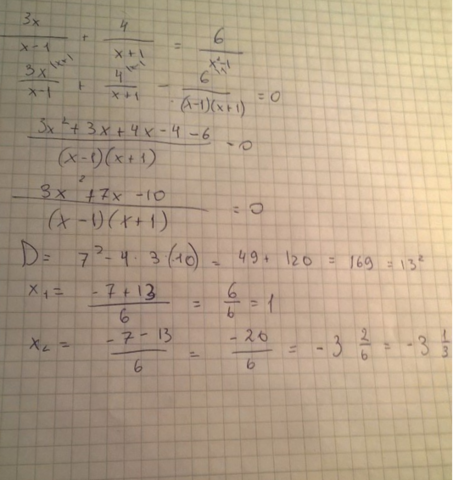 3x/(x-1) + 4/(x+1) = 6/(x²-1)
3x^(x+1)/(x-1) + 4^(x-1)/(x+1) - 6/((x-1)(x+1)) = 0
(3x² + 3x + 4x - 4 - 6)/((x-1)(x+1)) = 0
(3x² + 7x - 10)/((x-1)(x+1)) = 0
D = 7² - 4 · 3 · (10) = 49 + 120 = 169 = 13²
x₁ = (-7 + 13)/6 = 6/6 = 1
x₂ = (-7 - 13)/6 = -20/6 = -3 2/6 = -3 1/3